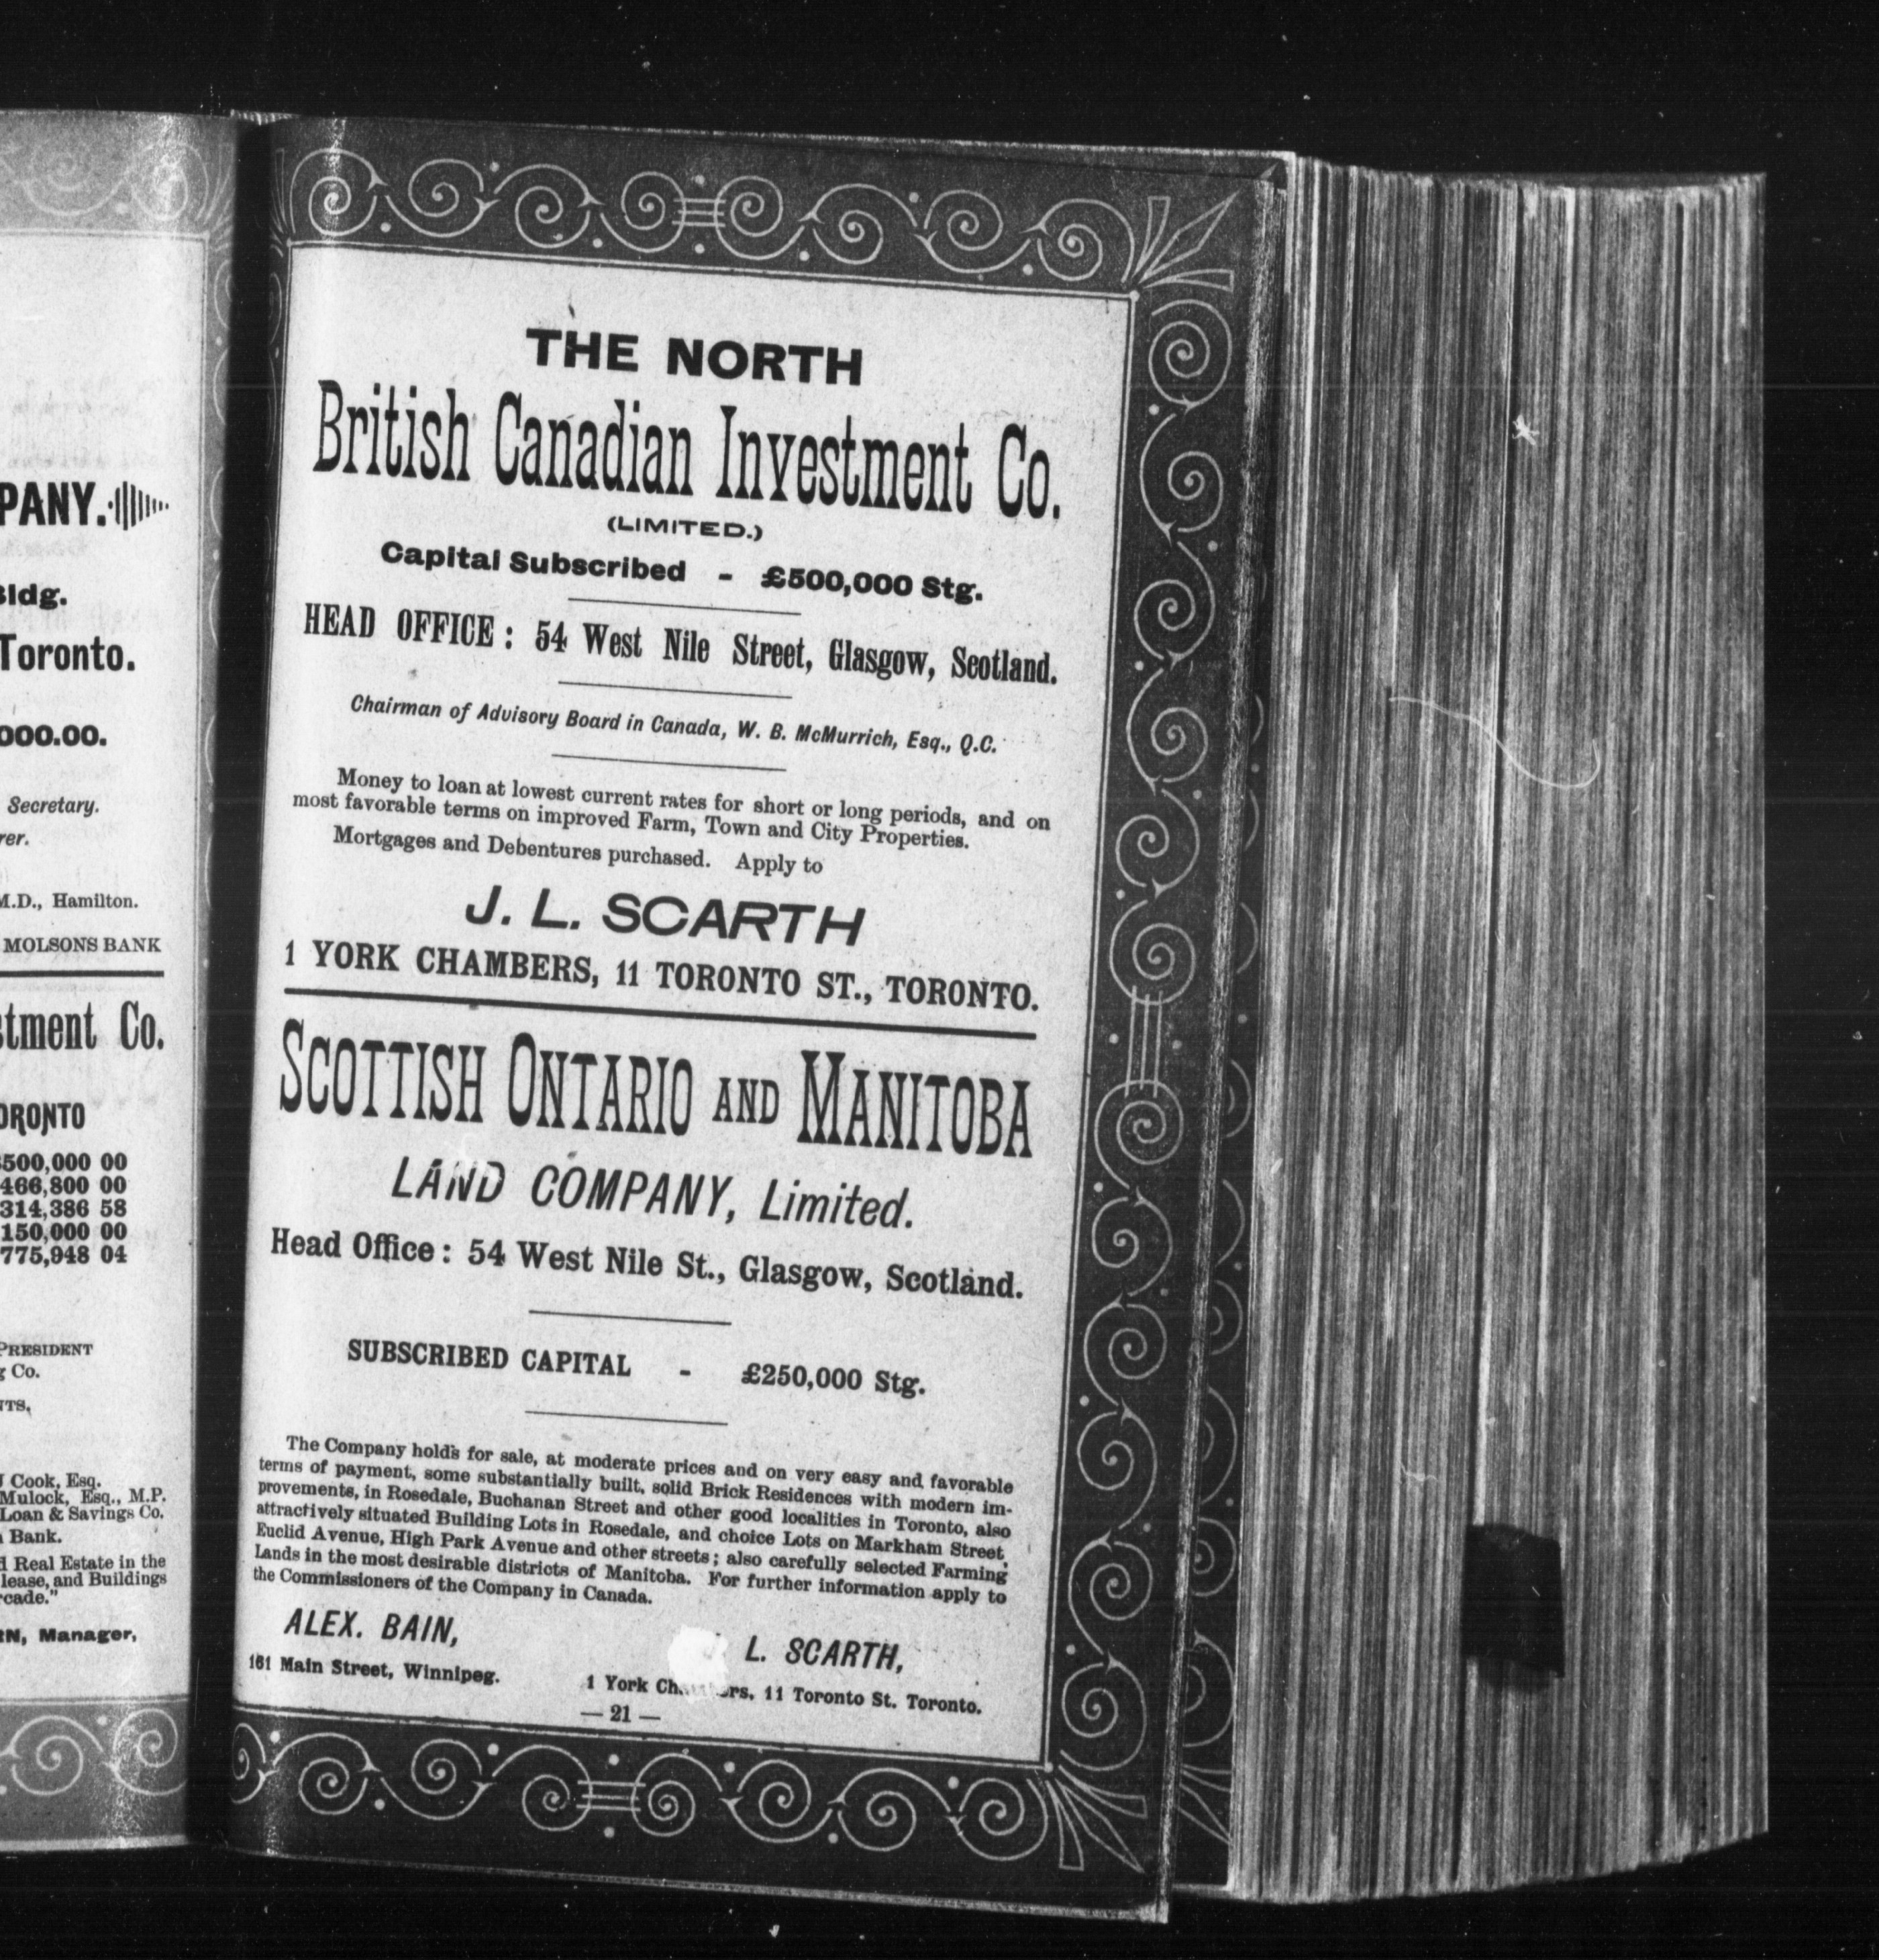 PANY.
Bldg.
Toronto.
000.00.
Secretary.
rer.
M.D., Hamilton.
MOLSONS BANK
stment Co.
ORONTO
500,000 00
466,800 00
314,386 58
150,000 00
775,948 04
PRESIDENT
g Co.
NTS,
Cook, Esq.
Mulock, Esq., M.P.
Loan & Savings Co.
n Bank.
d Real Estate in the
lease, and Buildings
rcade."
RN, Manager,
THE NORTH
British Canadian Investment Co.
(LIMITED.)
Capital Subscribed - £500,000 Stg.
HEAD OFFICE: 54 West Nile Street, Glasgow, Scotland.
Chairman of Advisory Board in Canada, W. B. McMurrich, Esq., Q.C.
Money to loan at lowest current rates for short or long periods, and on
most favorable terms on improved Farm, Town and City Properties.
Mortgages and Debentures purchased. Apply to
J. L. SCARTH
1 YORK CHAMBERS, 11 TORONTO ST., TORONTO.
SCOTTISH ONTARIO AND MANITOBA
LAND COMPANY, Limited.
Head Office: 54 West Nile St., Glasgow, Scotland.
SUBSCRIBED CAPITAL - £250,000 Stg.
The Company holds for sale, at moderate prices and on very easy and favorable
terms of payment, some substantially built, solid Brick Residences with modern im-
provements, in Rosedale, Buchanan Street and other good localities in Toronto, also
attractively situated Building Lots in Rosedale, and choice Lots on Markham Street,
Euclid Avenue, High Park Avenue and other streets; also carefully selected Farming
Lands in the most desirable districts of Manitoba. For further information apply to
the Commissioners of the Company in Canada.
ALEX. BAIN,
161 Main Street, Winnipeg.
L. SCARTH,
1 York Ch rs, 11 Toronto St. Toronto.
— 21 —